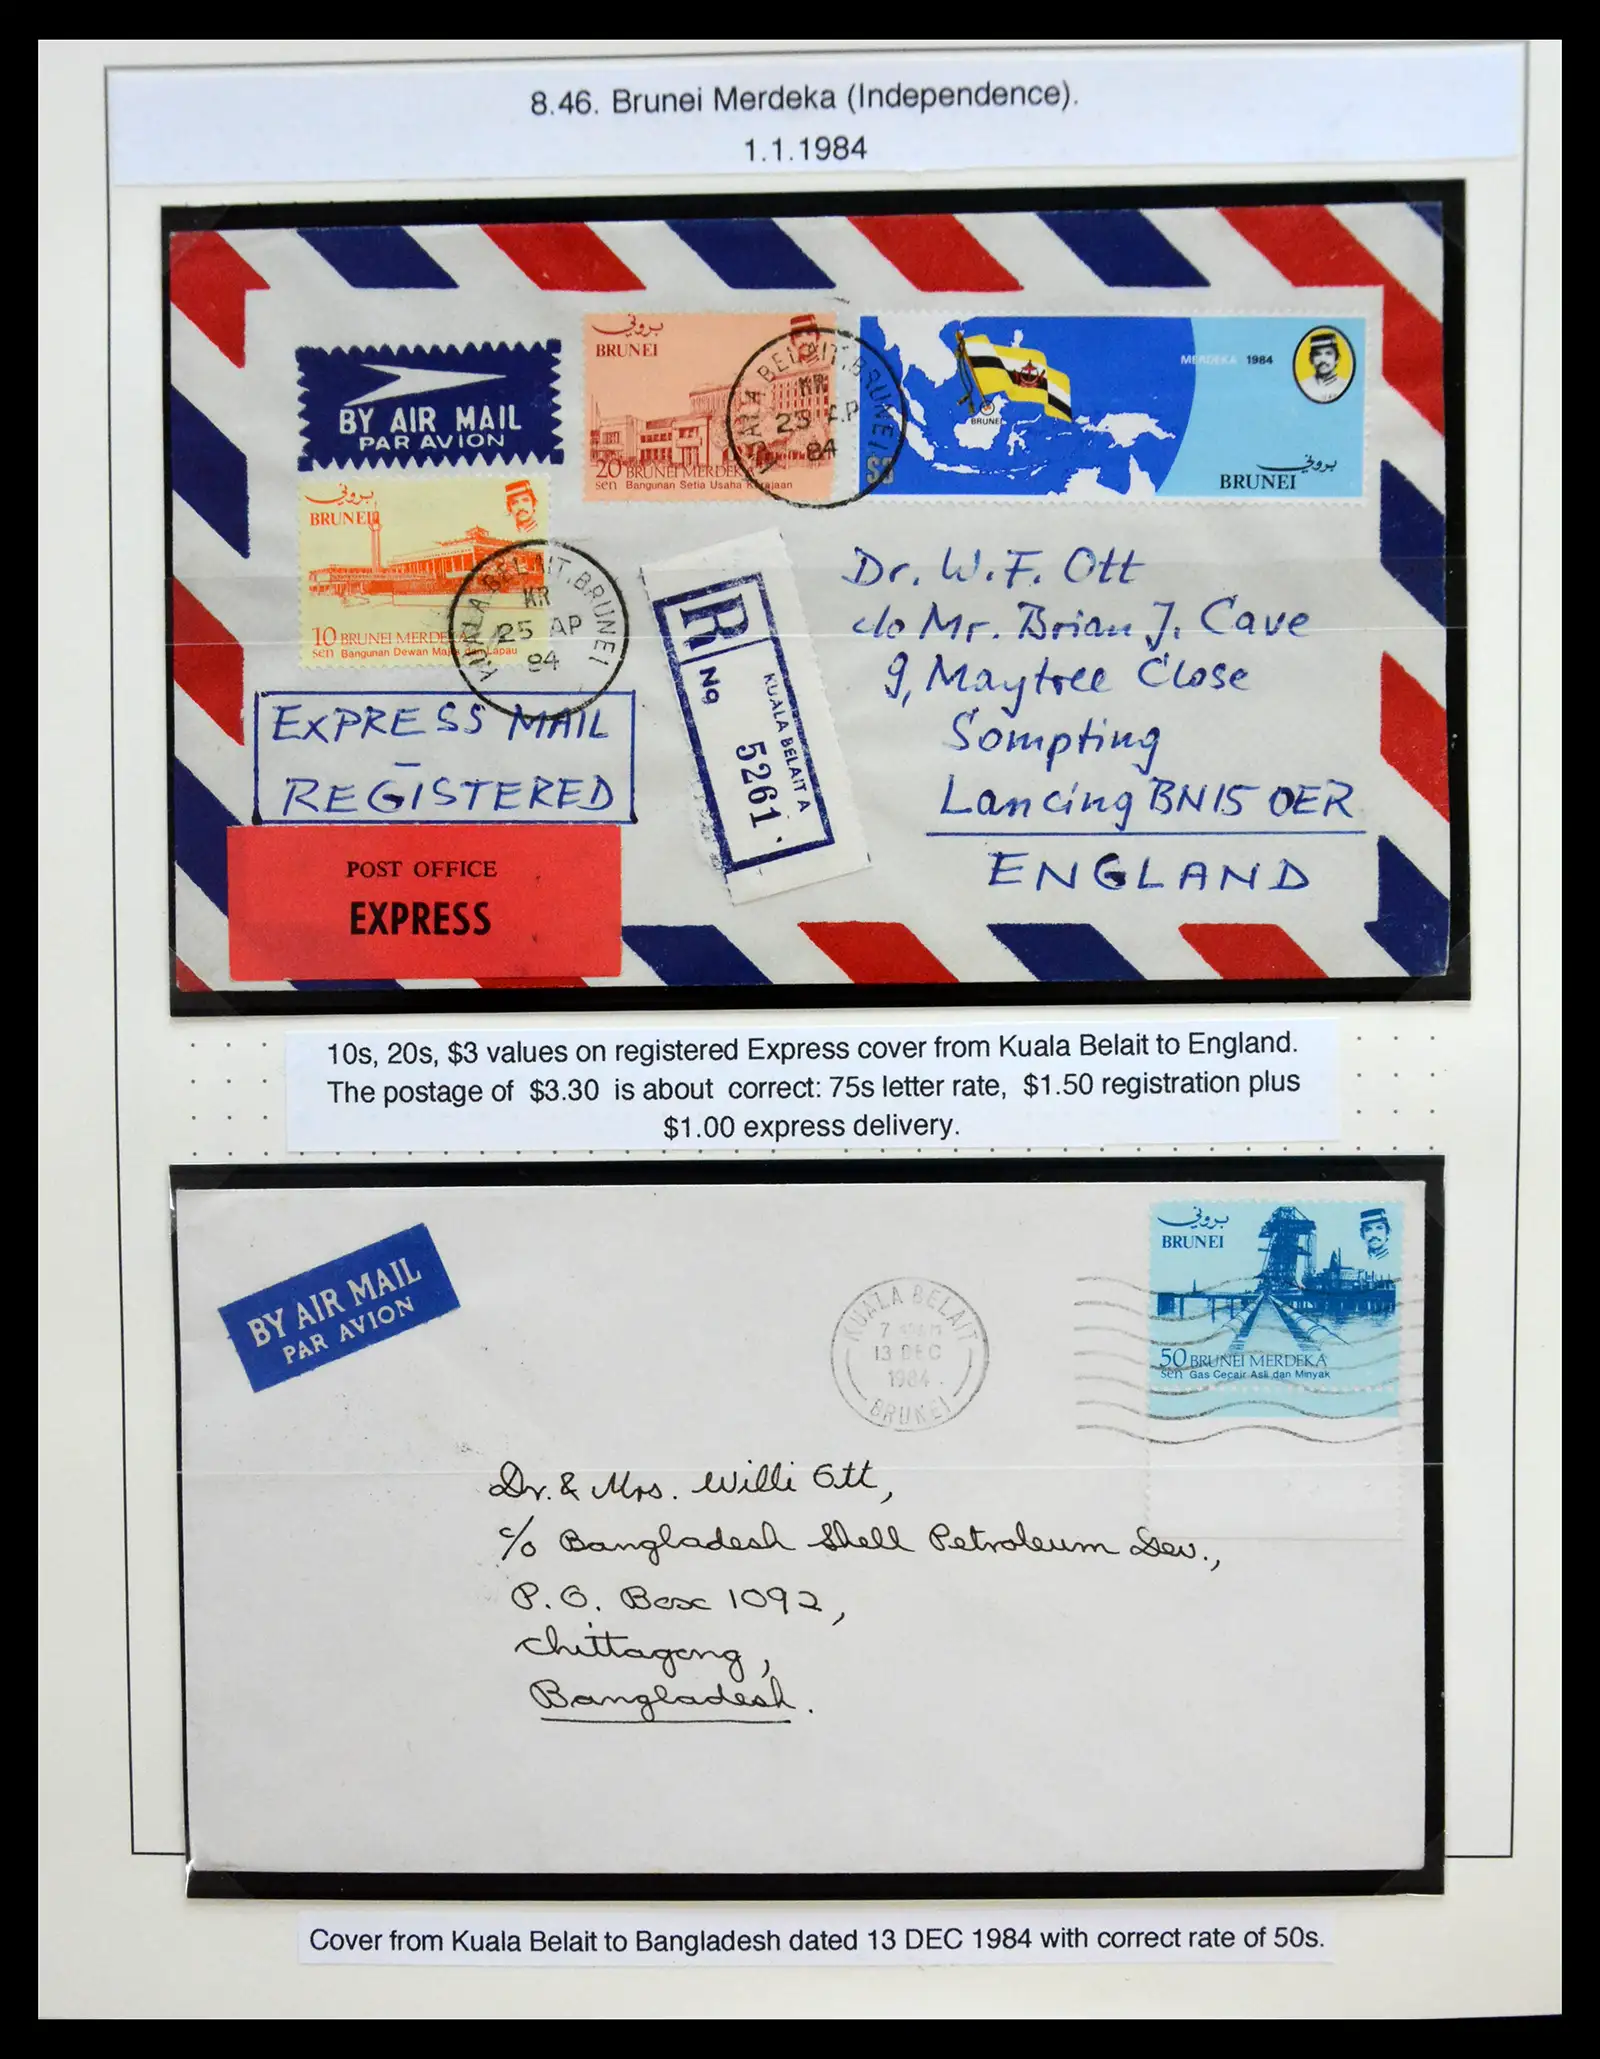 8.46. Brunei Merdeka (Independence).
1.1.1984
BY AIR MAIL
PAR AVION
بروني
BRUNEI
20 BRUNEI MERDEKA
sen Bangunan Setia Usaha Kerajaan
KUALA BELAIT. BRUNEI
KR
25 AP
84
MERDEKA 1984
BRUNEI
$3
بروني
BRUNEI
بروني
BRUNEI
10 BRUNEI MERDEKA
sen Bangunan Dewan Majlis dan Lapau
KUALA BELAIT. BRUNEI
KR
25 AP
84
R
No
KUALA BELAIT A
5261
Dr. W. F. Ott
c/o Mr. Brian J. Cave
9, Maytree Close
Sompting
Lancing BN15 0ER
ENGLAND
EXPRESS MAIL
–
REGISTERED
POST OFFICE
EXPRESS
10s, 20s, $3 values on registered Express cover from Kuala Belait to England.
The postage of $3.30 is about correct: 75s letter rate, $1.50 registration plus
$1.00 express delivery.
BY AIR MAIL
PAR AVION
KUALA BELAIT
13 DEC
1984
BRUNEI
بروني
BRUNEI
50 BRUNEI MERDEKA
sen Gas Cecair Asli dan Minyak
Dr. & Mrs. Willi Ott,
c/o Bangladesh Shell Petroleum Dev.,
P.O. Box 1092,
Chittagong,
Bangladesh.
Cover from Kuala Belait to Bangladesh dated 13 DEC 1984 with correct rate of 50s.